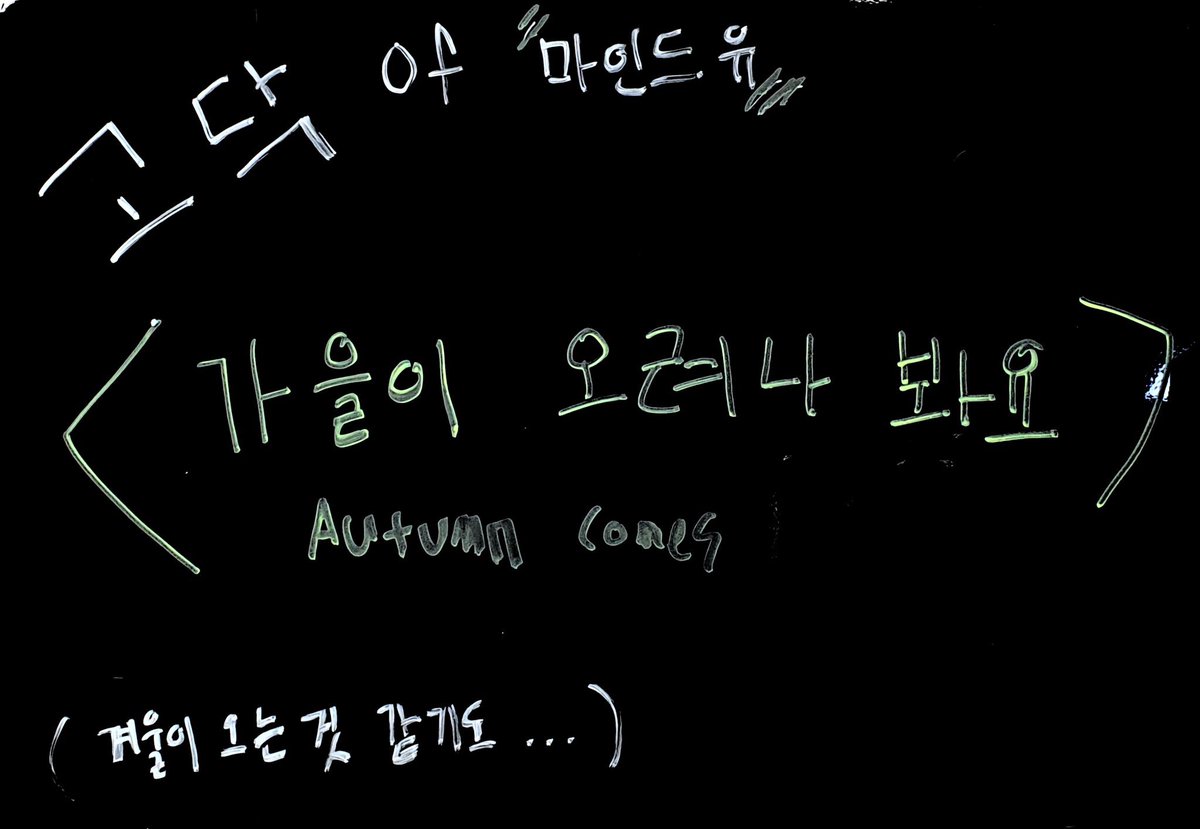 고닥 of "마인드유"
<가을이 오려나 봐요>
Autumn comes
(겨울이 오는 것 같기도 ...)